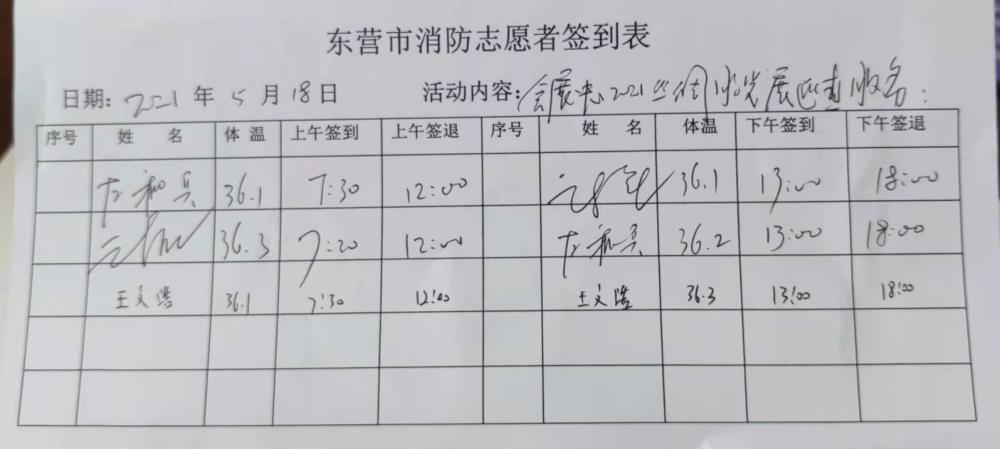 东营市消防志愿者签到表
日期: 2021 年 5 月 18 日 活动内容: 会展中心2021 展 服务:
序号 姓名 体温 上午签到 上午签退 序号 姓名 体温 下午签到 下午签退
36.1 7:30 12:00 36.1 13:00 18:00
36.3 7:20 12:00 36.2 13:00 18:00
王文浩 36.1 7:30 12:00 王文浩 36.3 13:00 18:00